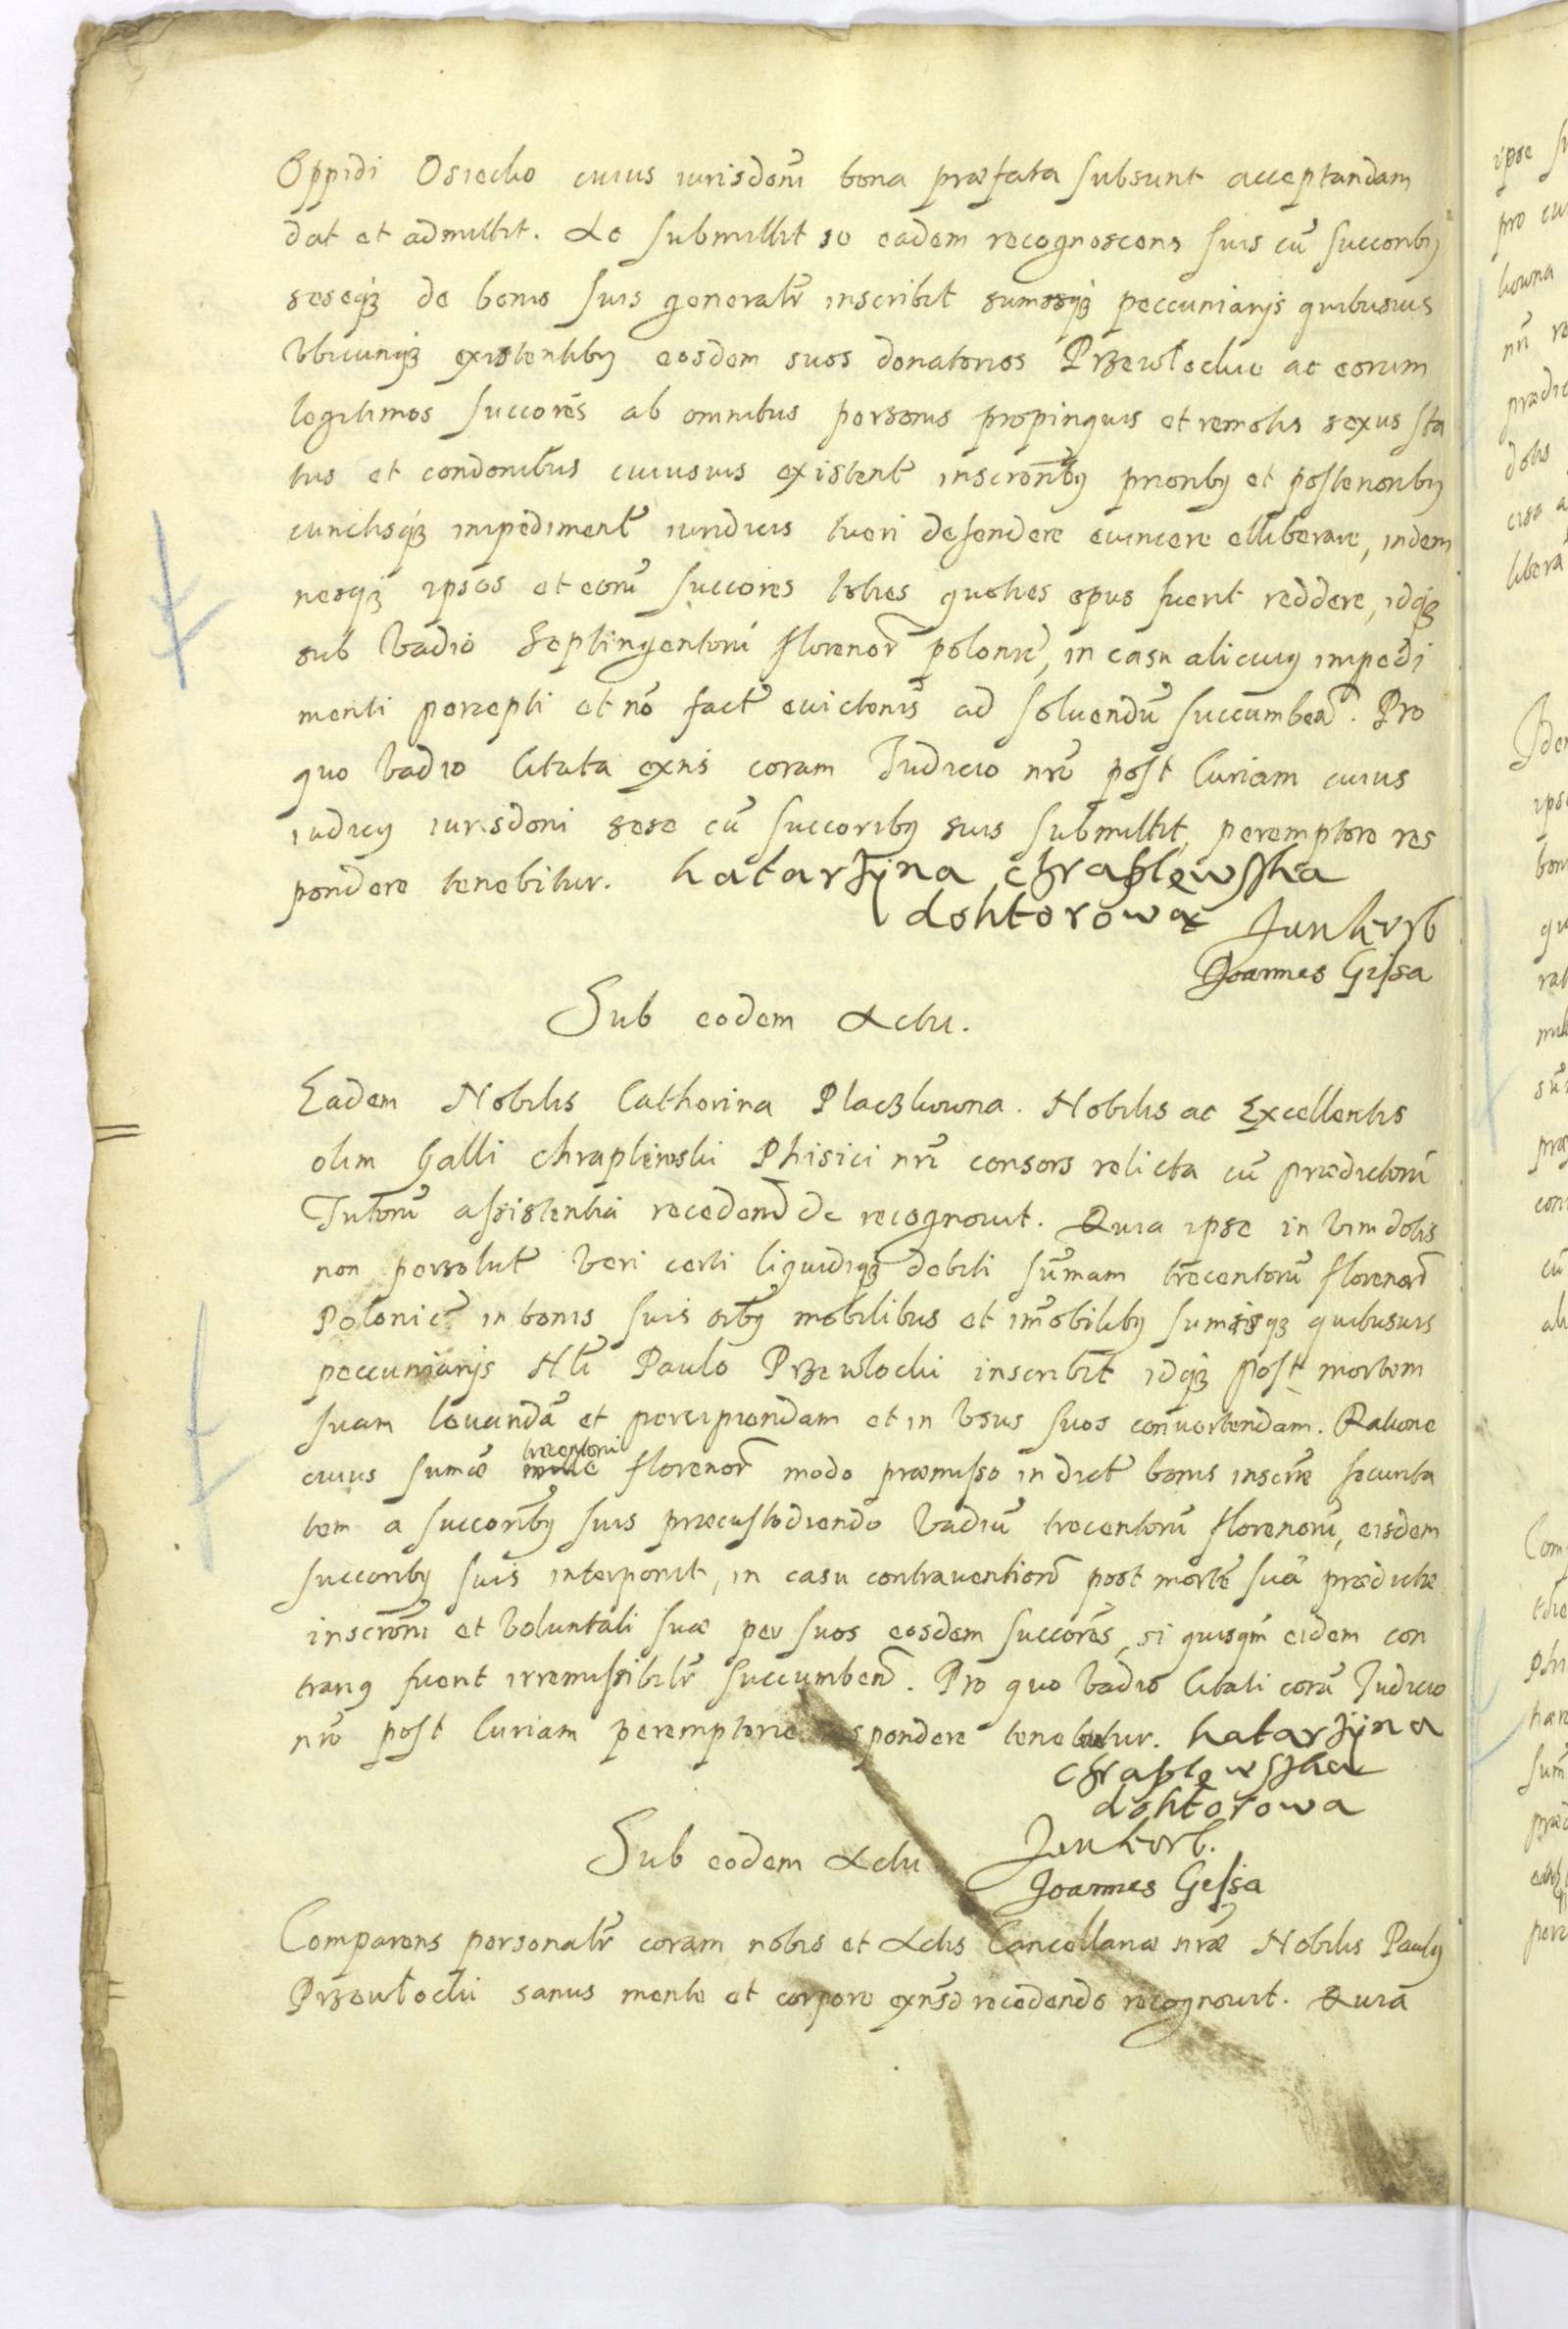 Oppidi Osiecko cuius iurisdoni bona præfata subsunt acceptandam
dat et admittit. Ac submittit se eadem recognoscens suis cũ succoribꝫ
seseqꝫ de bonis suis generalr inscribit sumisqꝫ peccuniarijs quibusuis
Vbicunqꝫ existentibꝫ eosdem suos donatorios Przewłockie ac eorum
legitimos succores ab omnibus personis propinquis et remotis sexus sta
tus et condonibus cuiusuis existent inscronibꝫ prioribꝫ et posterioribꝫ
cunctisqꝫ impediment iuridicis tueri defendere euincere elliberare, indem
nesqꝫ ipsos et eorũ succores toties quoties opus fuerit reddere, idqꝫ
sub Vadio Septingentorũ florenor polonic, in casu alicuiꝫ impedi
menti percepti et nõ fact euictonis ad soluendũ succumben. Pro
quo Vadio Citata exns coram Iudicio nro post Curiam cuius
iudicij iurisdoni sese cũ succoribꝫ suis submittit, peremptore res
pondere tenebitur. katarzÿna chraplewska
doktorowa Jan korb
Joannes Gissa
Sub eodem Actu.
Eadem Nobilis Catherina Placzkowna. Nobilis ac Excellentis
olim Galli chraplewski Phisici nri consors relicta cũ prædictorũ
Tutorũ assistentia recedend de recognouit. Quia ipse in Vim dotis
non persolut Veri certi liquidiqꝫ debiti sũmam trecentorũ florenor
Polonic in bonis suis oibꝫ mobilibus et im̃obilibꝫ sumisqꝫ quibusuis
peccuniarijs Nli Paulo Przewłocki inscribit idqꝫ post mortem
suam leuandã et percipiendam et in Vsus suos conuertendam. Ratione
cuius sumæ trecentorũ florenor modo præmisso in dict bonis inscræ securita
tem a succoribꝫ suis præcustodiendo Vadiũ trecentorũ florenorũ, eisdem
succoribꝫ suis interponit, in casu contrauention post mortẽ suã prædictæ
inscroni et Voluntati suæ per suos eosdem succores, si quisqm eidem con
trariꝫ fuerit irremissibilr succumben. Pro quo Vadio Citati corã Iudicio
nro post Curiam peremptorie respondere tenebitur. katarzÿna
chraplewska
doktorowa
Sub eodem Actu Jan korb.
Joannes Gissa
Comparens personalr coram nobis et Actis Cancellariæ nræ Nobilis Paulꝫ
Przewłocki sanus mente et corpore exns recedendo recognouit. Quia